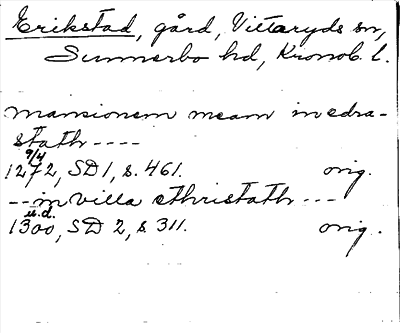 Erikstad, gård, Vittaryds sn,
Sunnerbo hd, Kronob. l.
mansionem meam in edra-
stath ----
9/4
1272, SD 1, s. 461. orig.
-- in villa ethristath ---
u.d.
1300, SD 2, s. 311. orig.